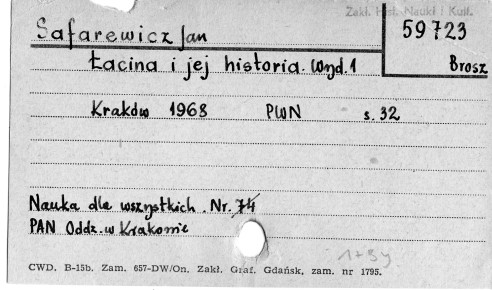 Zakł. Hist. Nauki i Kult.
Safarewicz Jan
59723
Łacina i jej historia. Wyd. 1
Brosz
Kraków 1968 PWN s. 32
Nauka dla wszystkich. Nr. 74
PAN Oddz. w Krakowie
CWD. B-15b. Zam. 657-DW/On. Zakł. Graf. Gdańsk, zam. nr 1795.